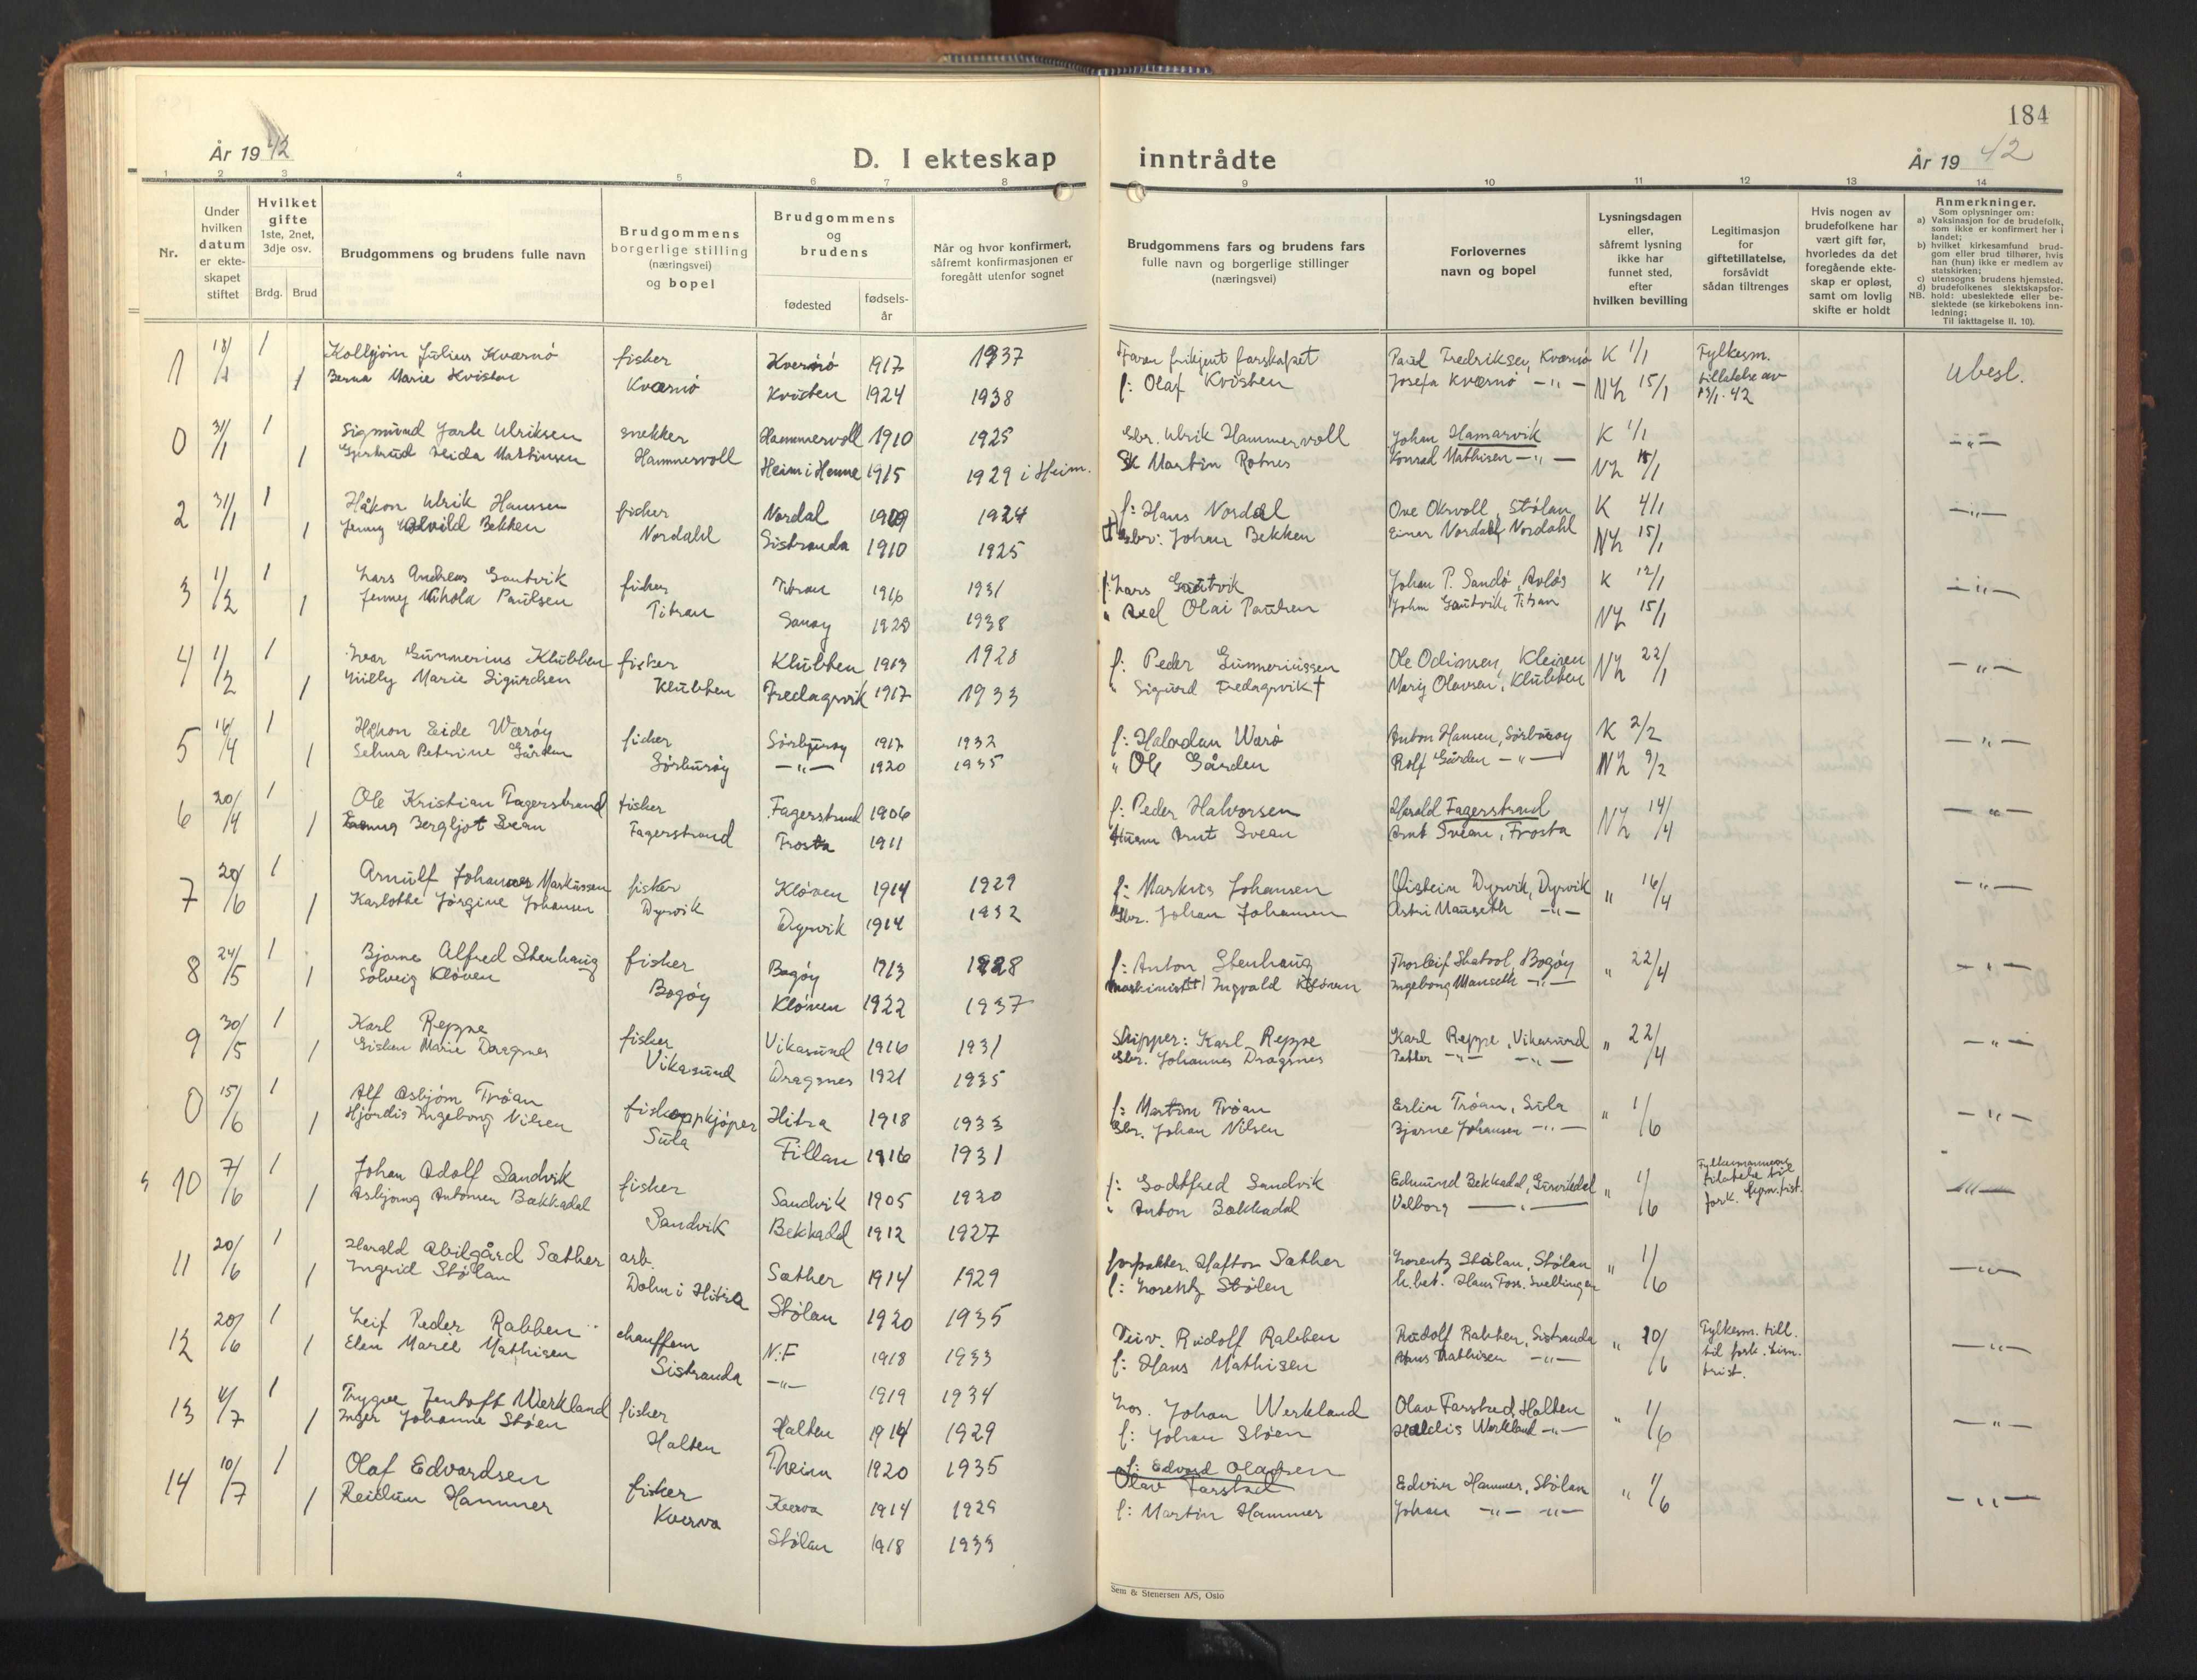 184
År 19 42
D. I ekteskap
inntrådte
År 19 42
1 2 3 4 5 6 7 8 9 10 11 12 13 14
Nr.
Under
hvilken
datum
er ekte-
skapet
stiftet
Hvilket
gifte
1ste, 2net,
3dje osv.
Brdg. Brud
Brudgommens og brudens fulle navn
Brudgommens
borgerlige stilling
(næringsvei)
og bopel
Brudgommens
og
brudens
fødested
fødsels-
år
Når og hvor konfirmert,
såfremt konfirmasjonen er
foregått utenfor sognet
Brudgommens fars og brudens fars
fulle navn og borgerlige stillinger
(næringsvei)
Forlovernes
navn og bopel
Lysningsdagen
eller,
såfremt lysning
ikke har
funnet sted,
efter
hvilken bevilling
Legitimasjon
for
giftetillatelse,
forsåvidt
sådan tiltrenges
Hvis nogen av
brudefolkene har
vært gift før,
hvorledes da det
foregående ekte-
skap er opløst,
samt om lovlig
skifte er holdt
Anmerkninger.
Som oplysninger om:
a) Vaksinasjon for de brudefolk,
som ikke er konfirmert her i
landet;
b) hvilket kirkesamfund brud-
gom eller brud tilhører, hvis
han (hun) ikke er medlem av
statskirken;
c) utensogns brudens hjemsted.
d) brudefolkenes slektskapsfor-
NB. hold: ubeslektede eller be-
slektede (se kirkebokens inn-
ledning;
Til iakttagelse II. 10).
1 18/1 1 Kolbjörn Julius Kværnö fisher Kvernö 1917 1937 Faren frikjent farskapet Paul Fredriksen, Kværnö K 1/1 Fylkesm.
1 Berna Marie Kvisten Kværnö Kvisten 1924 1938 f: Olaf Kvisten Josefa Kværnö -"- NL 15/1 tillatelse av 13/1-42 ubesl.
0 31/1 1 Sigmund Jarle Ulriksen snekker Hammervoll 1910 1925 Gbr. Ulrik Hammervoll Johan Hamarvik K 1/1
1 Gjertrud Heida Martinsen Hammervoll Heim i Hemne 1915 1929 i Heim. Sk Martin Rotnes Konrad Mathisen -"- NL 15/1 -"-
2 31/1 1 Håkon Ulrik Hansen fisher Nordal 1909 1924 f: Hans Nordal Ove Okvoll, Stølan K 4/1
1 Jenny Bekken Nordahl Sistranda 1910 1925 † Gbr: Johan Bekken Einar Nordahl Nordahl NL 15/1 -"-
3 1/2 1 Lars Andreas Gautvik fisher Titran 1916 1931 f: Lars Gautvik Johan P. Sandö, K 12/1
1 Jenny Paulsen Titran 1938 " Axel Olai Paulsen John Gautvik, Titran NL 15/1 -"-
4 1/2 1 Ivar Gunnerius Klubben fisker Klubben 1913 1928 f: Peder Gunneriussen Ole Odinsen, Kleiven NL 22/1
1 Milly Marie Sigurdsen Klubben Fredagsvik 1917 1933 " Sigurd Fredagsvik † Mary Olavsen, Klubben -"-
5 16/4 1 Håkon Eide Wærøy fisher Sörburøy 1917 1932 f: Halvdan Wærö Anton Hansen, Sörburøy K 2/2
1 Selma Petrine Gården Sörburøy -"- 1920 1935 " Ole Gården Rolf Gården -"- NL 9/2 -"-
6 20/4 1 Ole Kristian Fagerstrand fisker Fagerstrand 1906 f: Peder Halvorsen Harald Fagerstrand NL 14/4
1 Bergljot Svean Fagerstrand Frosta 1911 Arnt Svean Arnt Svean, Frosta -"-
7 20/6 1 Arnulf Johannes Markussen fisker Kløven 1914 1929 f: Markus Johansen Øistein Dyrvik, Dyrvik " 16/4
1 Karlotte Jörgine Johansen Dyrvik Dyrvik 1914 1932 Gbr. Johan Johansen Astri Mauseth -"- -"-
8 24/5 1 Bjarne Alfred Stenhaug fisker Bogøy 1913 1928 f: Anton Stenhaug Thorleif Skatvol, Bogøy " 22/4
1 Solveig Kløven Bogøy Kløven 1922 1937 Maskinist Ingvald Kløven Ingeborg Mauseth -"- -"-
9 30/5 1 Karl Reppe fisker Vikasund 1916 1931 Skipper: Karl Reppe Karl Reppe, Vikasund " 22/4
1 Gisken Marie Dragsnes Vikasund Dragsnes 1921 1935 Gbr. Johannes Dragsnes Petter -"- -"- -"-
0 15/6 1 Alf Asbjörn Trøan fiskeoppkjöper Hitra 1918 1933 f: Martin Trøan Erlin Trøan, Sula " 1/6
1 Hjördis Ingeborg Nilsen Sula Fillan 1916 1931 Gbr. Johan Nilsen Bjarne Johansen -"- -"-
10 7/6 1 Johan Adolf Sandvik fisker Sandvik 1905 1920 f: Godtfred Sandvik Edmund Bekkadal, " 1/6 Fylkesmannens
1 Asbjörng Antonsen Bakkadal Sandvik Bekkadal 1912 1927 " Anton Bakkadal Valborg -"- tilatelse til fork.
11 20/6 1 Harald Abilgård Sæther arb. Sæther 1914 1929 forpakter. Hafton Sæther Lorentz Stølan, Stølan " 1/6
1 Ingerid Stølan Dolm i Hitra Stølan 1920 1935 f: Lorentz Stølen h.bet. Hans Foss. Svellingen -"-
12 20/6 1 Leif Peder Rabben chauffør N.F 1918 1933 Rudolf Rabben Rudolf Rabben, Sistranda " 10/6 Fylkesm. till.
1 Elen Marie Mathisen Sistranda -"- 1919 1934 f: Hans Mathisen Hans Mathisen -"- til fork. frist. -"-
13 4/7 1 Trygve Jentoft Werkland fisher Halten 1914 1929 Los. Johan Werkland Olav Farstad, Halten " 1/6
1 Inger Johanne Støen Halten Theim 1920 1935 f: Johan Støen Haldis Werkland -"- -"-
14 10/7 1 Olaf Edvardsen fisher Kverva 1914 1929 f: Edvard Olavsen Olav Farstad Edvin Hammer, Stølan " 1/6
1 Reidun Hammer Kverva Stølan 1918 1933 f: Martin Hammer Johan -"- -"- -"-
Sem & Stenersen A/S, Oslo